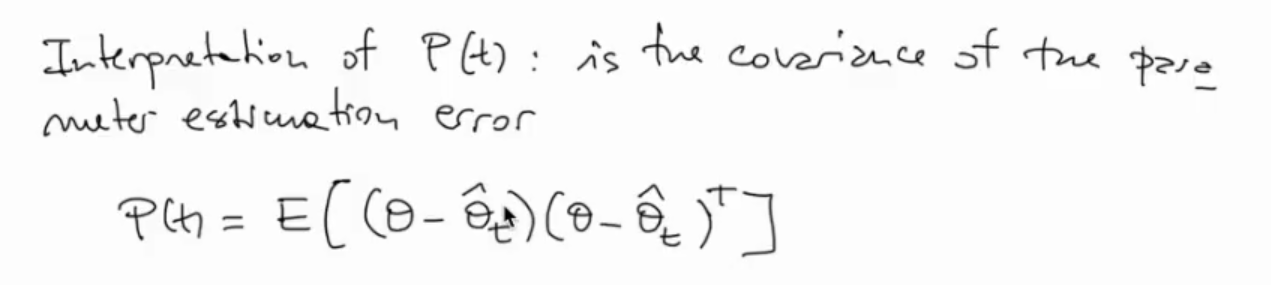 Interpretation of P(t) : is the covariance of the para
meter estimation error
P(t) = E[(θ - θ̂_t)(θ - θ̂_t)^T]